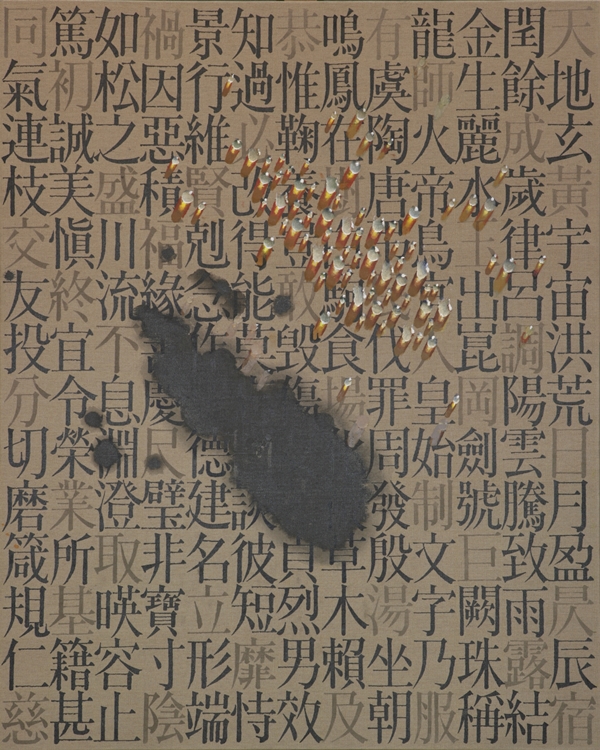 天地玄黃宇宙洪荒日月盈昃辰宿
閏餘成歲律呂調陽雲騰致雨露結
金生麗水玉出崑岡劍號巨闕珠稱
龍師火帝鳥官人皇始制文字乃服
有虞陶唐伐罪周發殷湯坐朝
鳴鳳在駒食場草木賴及
恭惟鞠養豈敢毀傷貞烈男效
知過必改得能莫談彼短靡恃
景行維賢剋念作德建名立形端
禍因惡積福緣善慶尺璧非寶寸陰
如松之盛川流不息淵澄取暎容止
篤初誠美慎終宜令榮業所基籍甚
同氣連枝交友投分切磨箴規仁慈